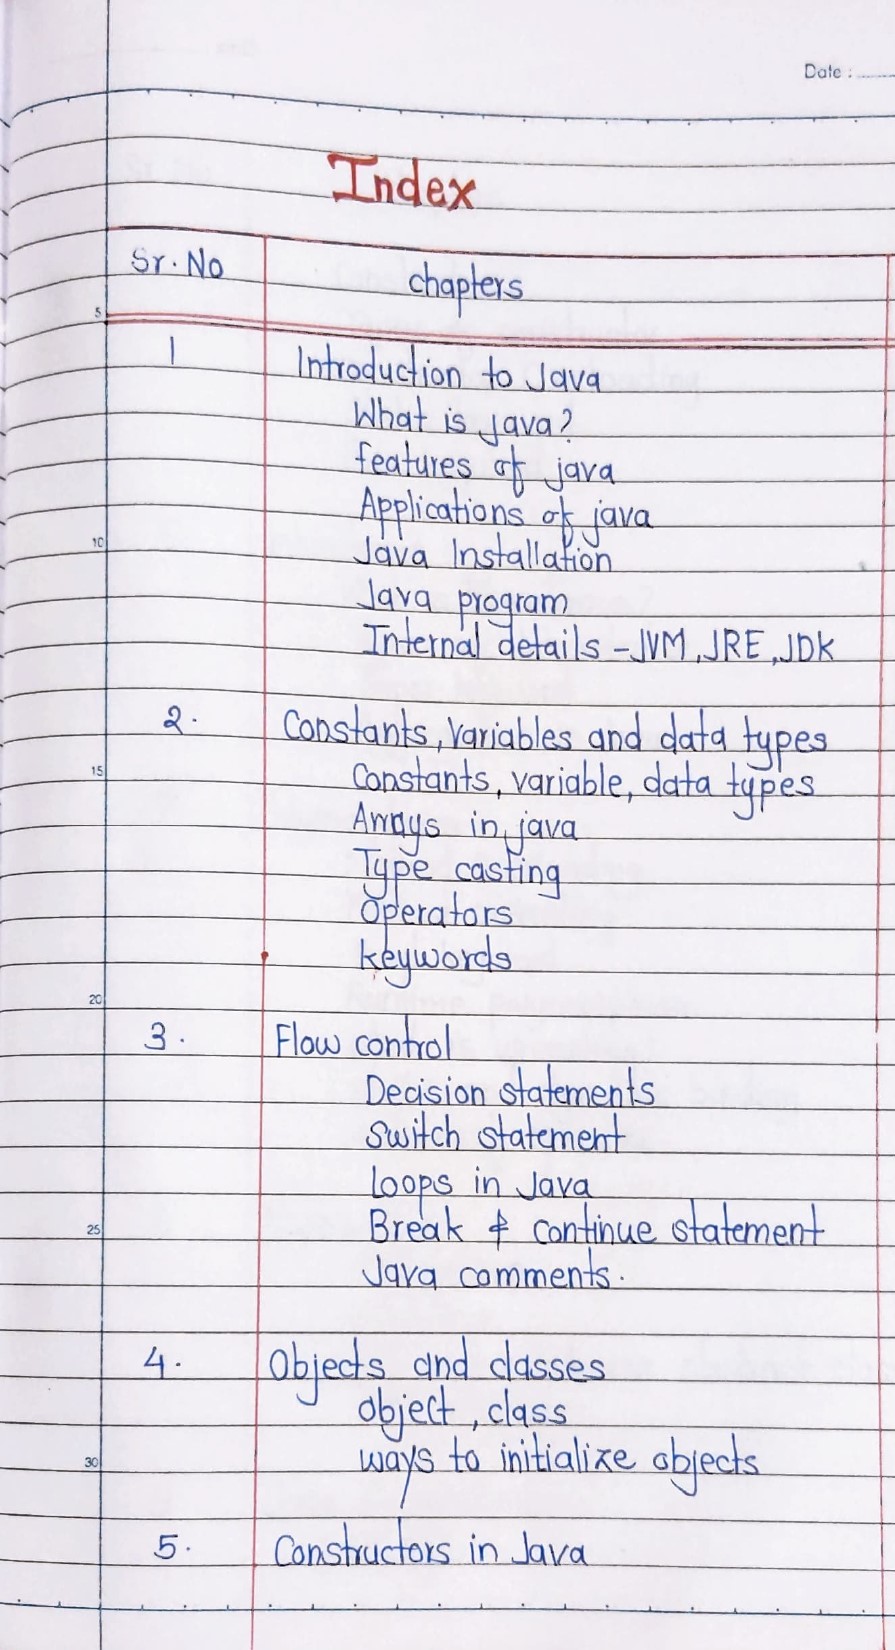 Date :
Index
Sr. No chapters
5
1 Introduction to Java
What is java?
features of java
Applications of java
10 Java Installation
Java program
Internal details - JVM, JRE, JDK
2. Constants, variables and data types
15 Constants, variable, data types
Arrays in java
Type casting
Operators
keywords
20
3. Flow control
Decision statements
Switch statement
Loops in Java
25 Break & continue statement
Java comments.
4. Objects and classes
object, class
30 ways to initialize objects
5. Constructors in Java